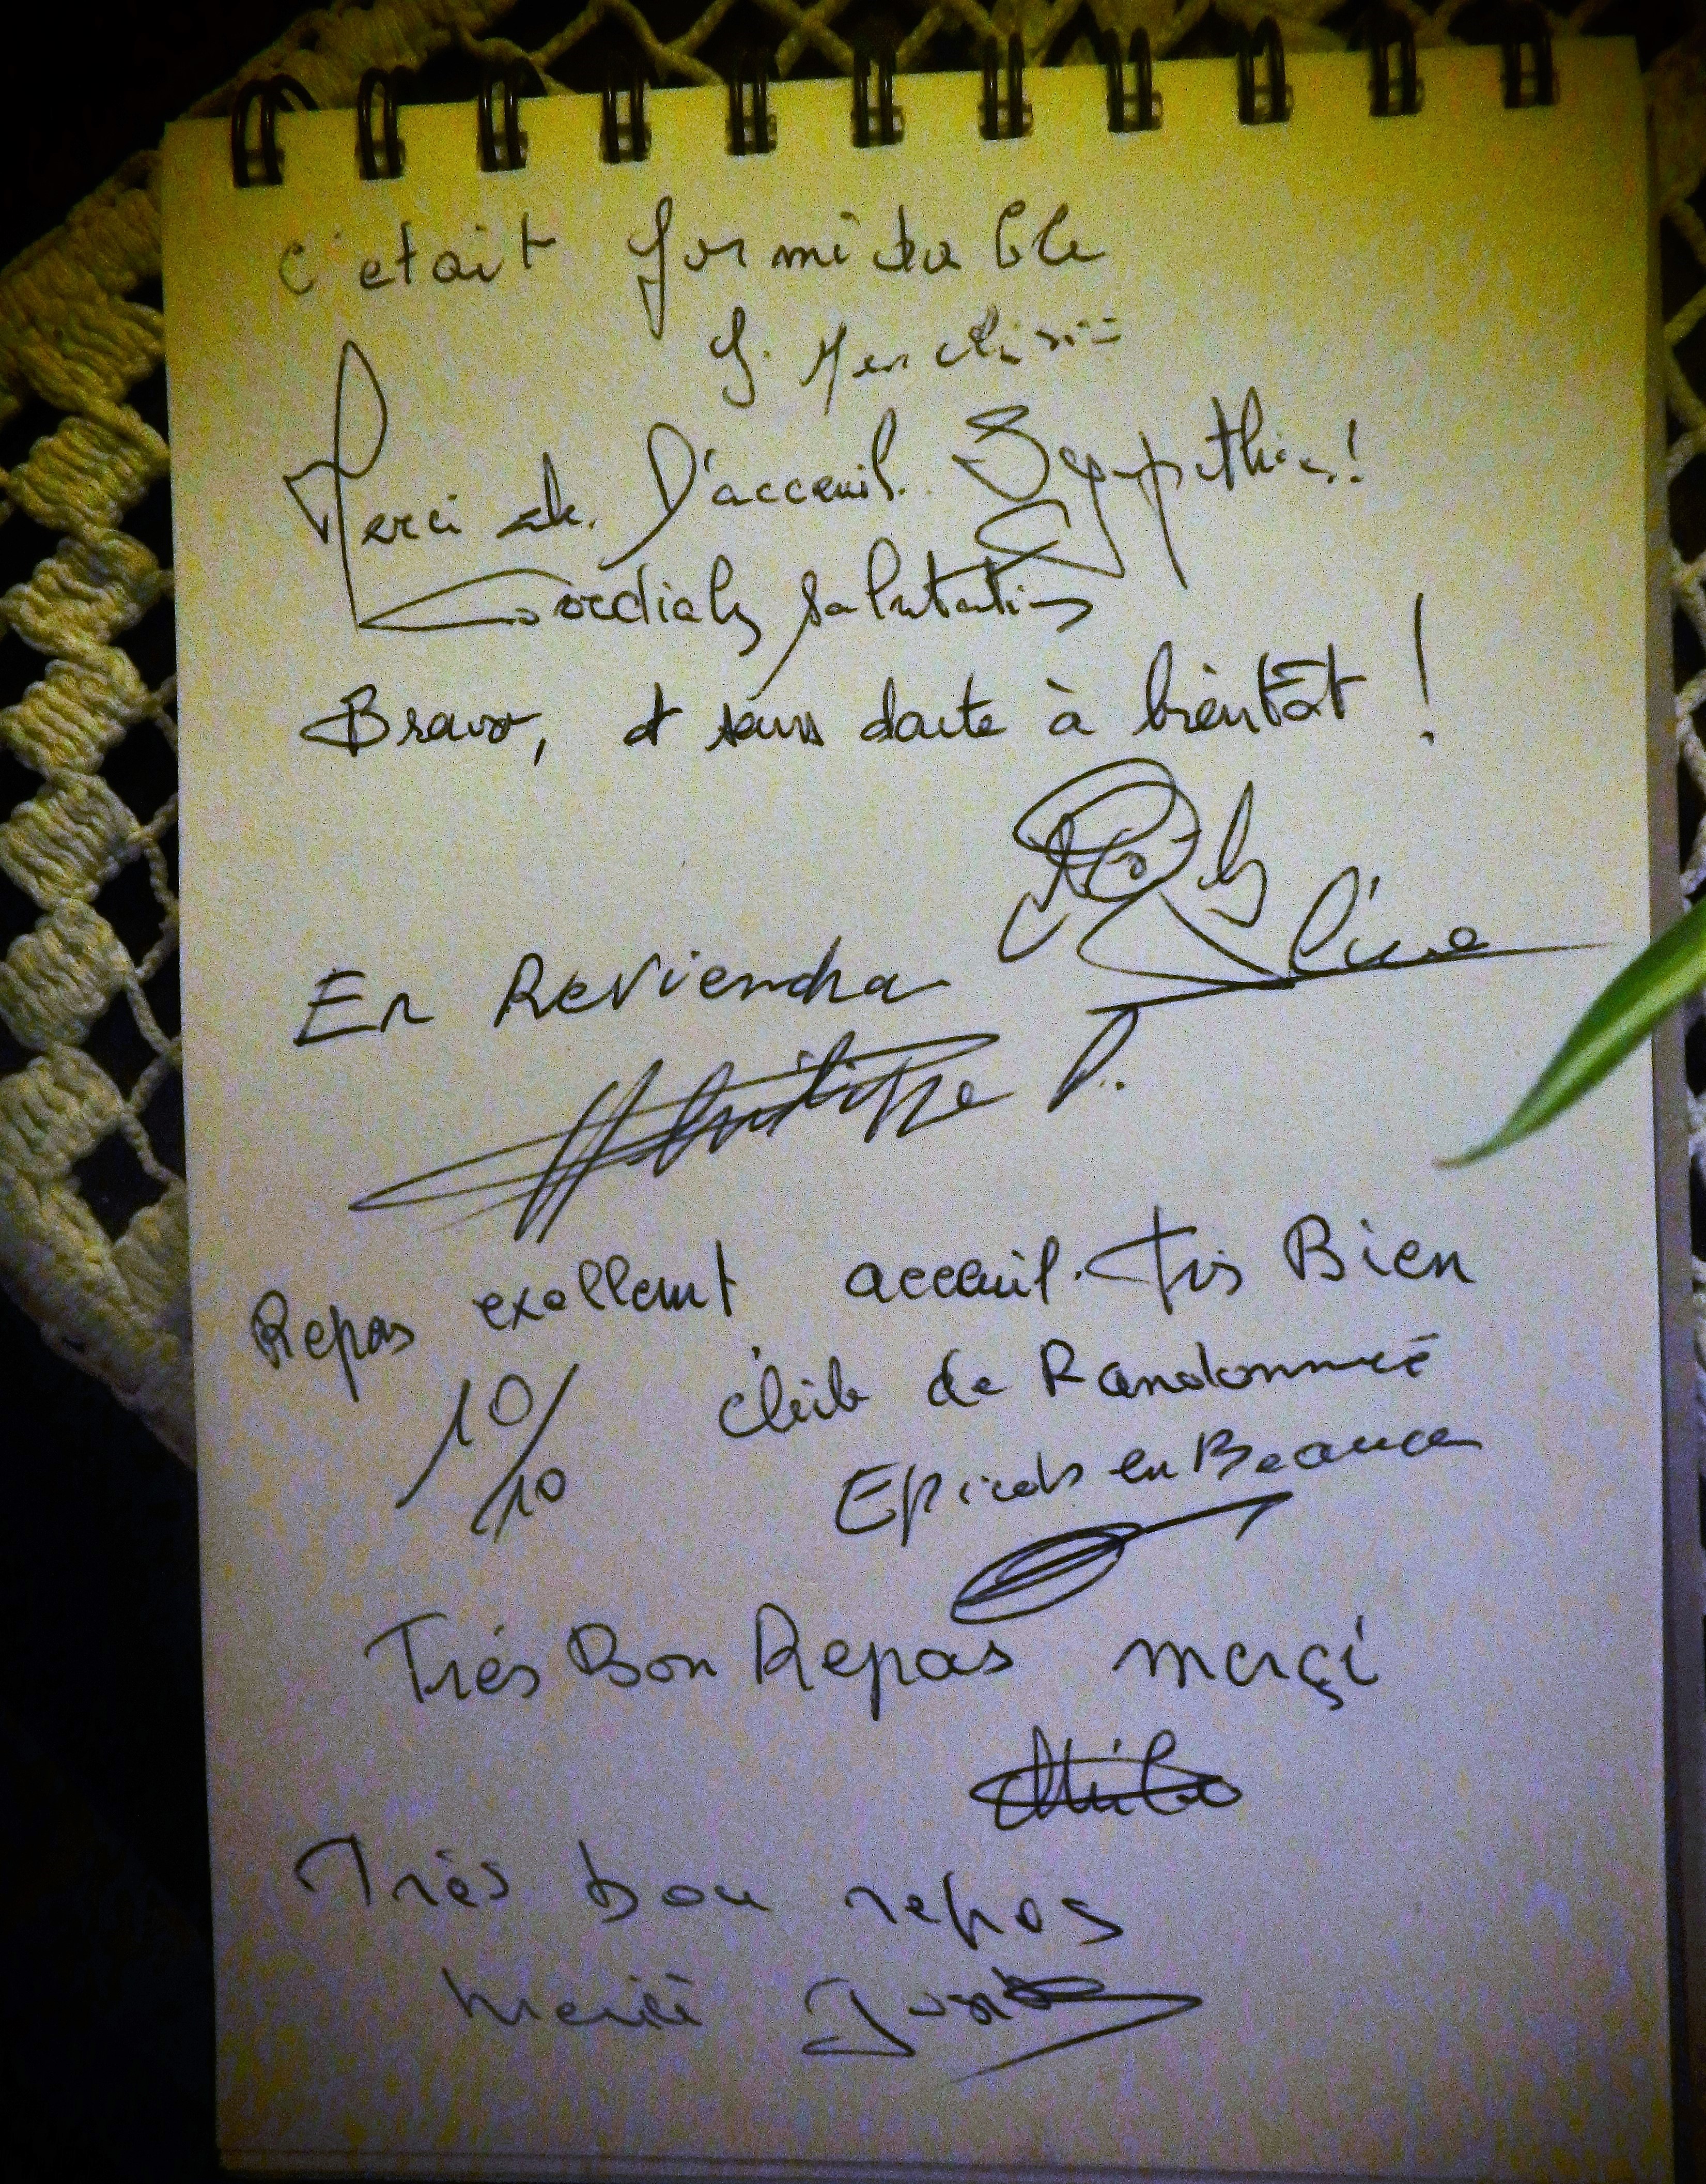 c'etait formidable
Merci de D'acceuil. Sympathie!
Cordiales salutations
Bravo, et sans doute à bientôt !
En Reviendra
Philippe P.
Repas exellent acceuil. très Bien
10/10 club de Randonneé
Epieds en Beauce
Trés Bon Repas merçi
Très bon repas
merci